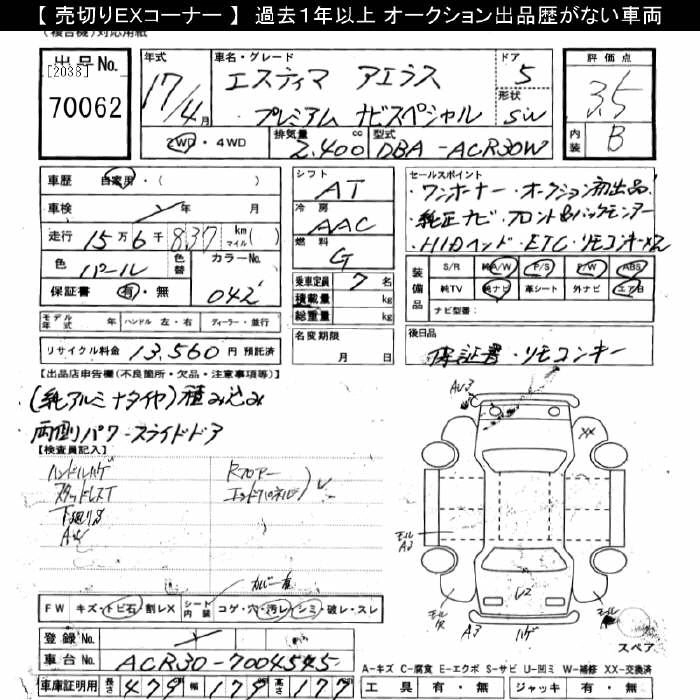 【 売切りEXコーナー 】 過去1年以上 オークション出品歴がない車両
(複合機)対応用紙
出品No.
[2038]
70062
年式
17/4月
車名・グレード
エスティマ アエラス
プレミアム ナビスペシャル
ドア
5
形状
SW
評価点
3.5
内装
B
2WD・4WD
排気量
2.400 cc
型式
DBA-ACR30W
車歴 自家用・(
車検 年 月
走行 15万6千837 km マイル( )
色 パール 色替
カラーNo.
042
保証書 有・無
シフト
AT
冷房
AAC
燃料
G
乗車定員 7名
積載量 kg
総重量 kg
セールスポイント
・ワンオーナー・オークション初出品
・純正ナビ・フロント&バックモニター
・HIDヘッド・ETC・リモコンキー
装備品
S/R 純A/W P/S P/W ABS
純TV 純ナビ 革シート 外ナビ エアB
ナビ型番:
モデル年式 年 ハンドル 左・右 ディーラー・並行
リサイクル料金 13,560 円 預託済
名変期限
月 日
後日品
保証書・リモコンキー
【出品店申告欄(不良箇所・欠品・注意事項等)】
(純アルミナタイヤ)積み込み
両側パワースライドドア
【検査員記入】
ハンドルハゲ
スタッドレスT
下廻りS
Rフロアー
エンドパネル
カバー
AU3
XX
モール
A3
U2
モール
A3
ハゲ
モール
スペア
FW キズ・トビ石・割レX
シート内装 コゲ・穴・汚レ・シミ・破レ・スレ
登録No.
車台No. ACR30-7004545
車庫証明用 長さ 479 幅 179 高さ 177
A-キズ C-腐食 E-エクボ S-サビ U-凹ミ W-補修 XX-交換済
工具 有・無 ジャッキ 有・無